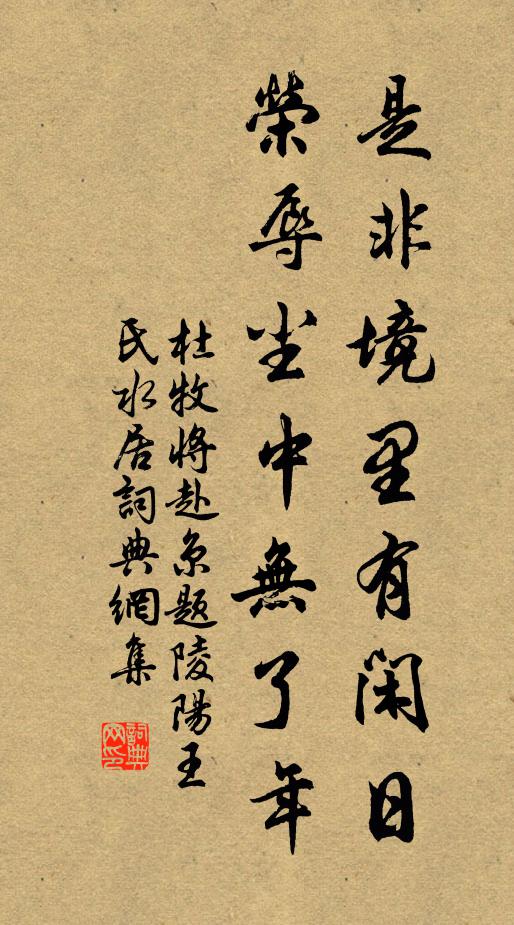 是非境里有閑日
榮辱塵中無了年
杜牧將赴京題陵陽王
氏水居詞典網集
詞典
网印